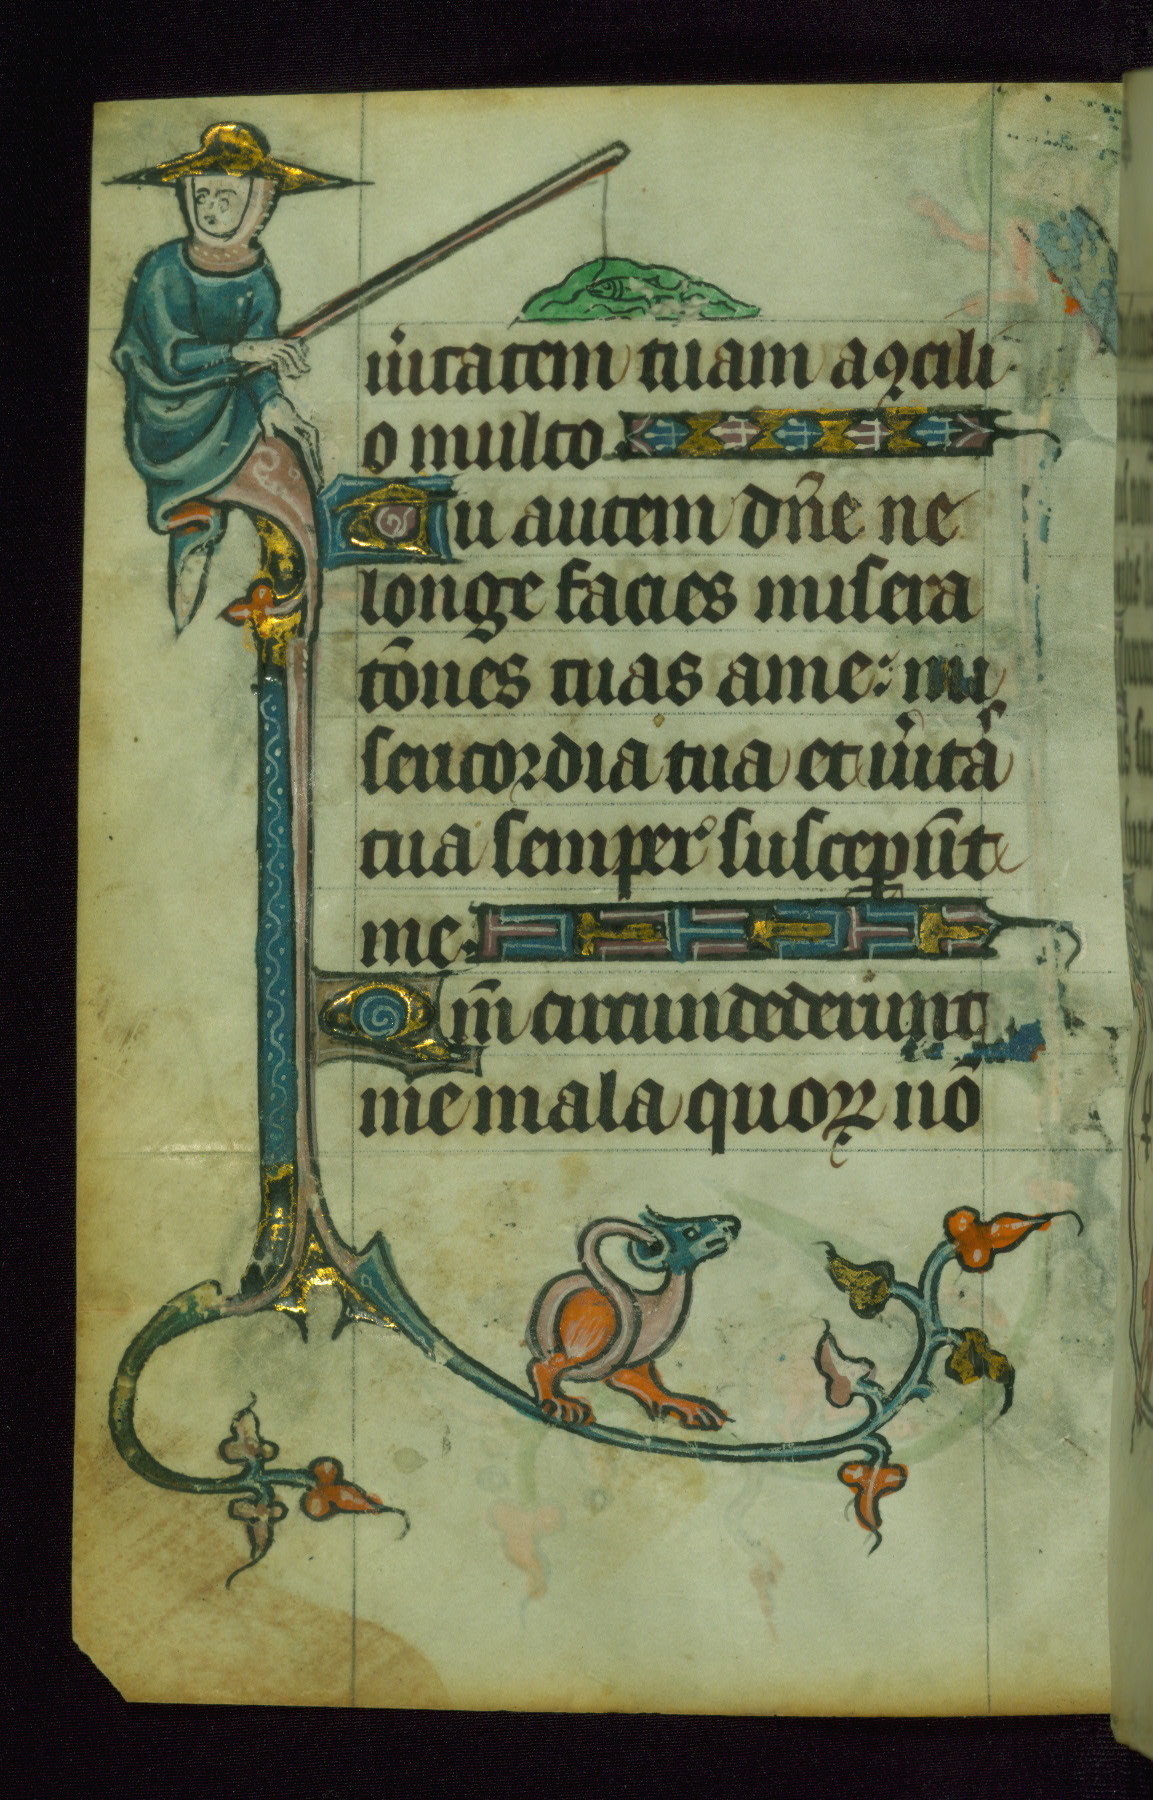 ũitatem tuam a ꝯcili
o multo.
Tu autem dñe ne
longe facies misera
tõnes tuas a me: mi
sericordia tua et ũitas
tua semper susceper̃ũt
me.
Qm̃ circumdederunt
me mala quoꝝ nõ